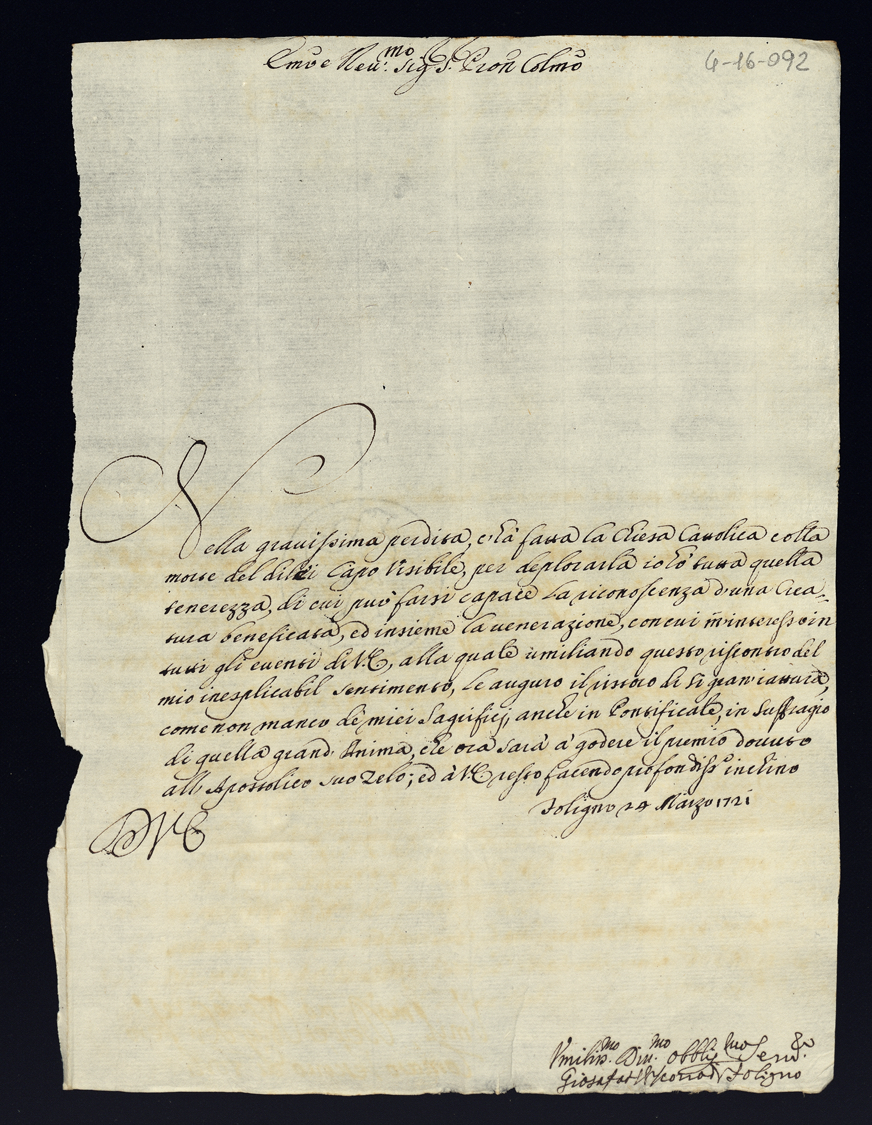 Em̃o e Reu.mo Sig.r S.r P̃ron Colm̃o
6-16-092
Nella grauissima perdita, c'hà fatta la Chiesa Cattolica colla
morte del di lei Capo Visibile, per deplorarla io hò tutta quella
tenerezza, di cui può farsi capace la riconoscenza d'una Crea-
tura beneficata, ed insieme la uenerazione, con cui m'interesso in
tutti gli euenti di V.E., alla quale umiliando questo riscontro del
mio inesplicabil sentimento, le auguro il ristoro di sì gran iattura,
come non manco de miei Sagrifici, anche in Pontificale, in Suffragio
di quella grand'Anima, che ora sarà à godere il premio douuto
all'Apostolico suo Zelo; ed à V.E. resto facendo profondiss.o inchino
Foligno 24 Marzo 1721
D V E
Vmiliss.mo Diu.mo Obblig.mo Seru.re
Giosafat Vescouo di Foligno